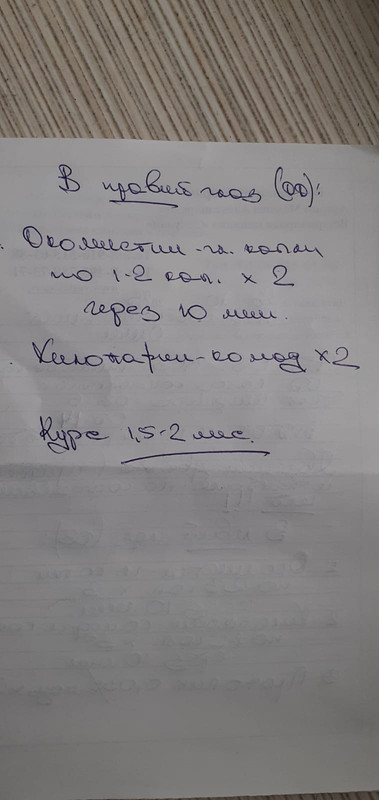 В правый глаз (OD):
. Окомистин -гл. капли
по 1-2 кап. x 2
через 10 мин.
. Хилопарин-комод x2
Курс 1,5-2 мес.